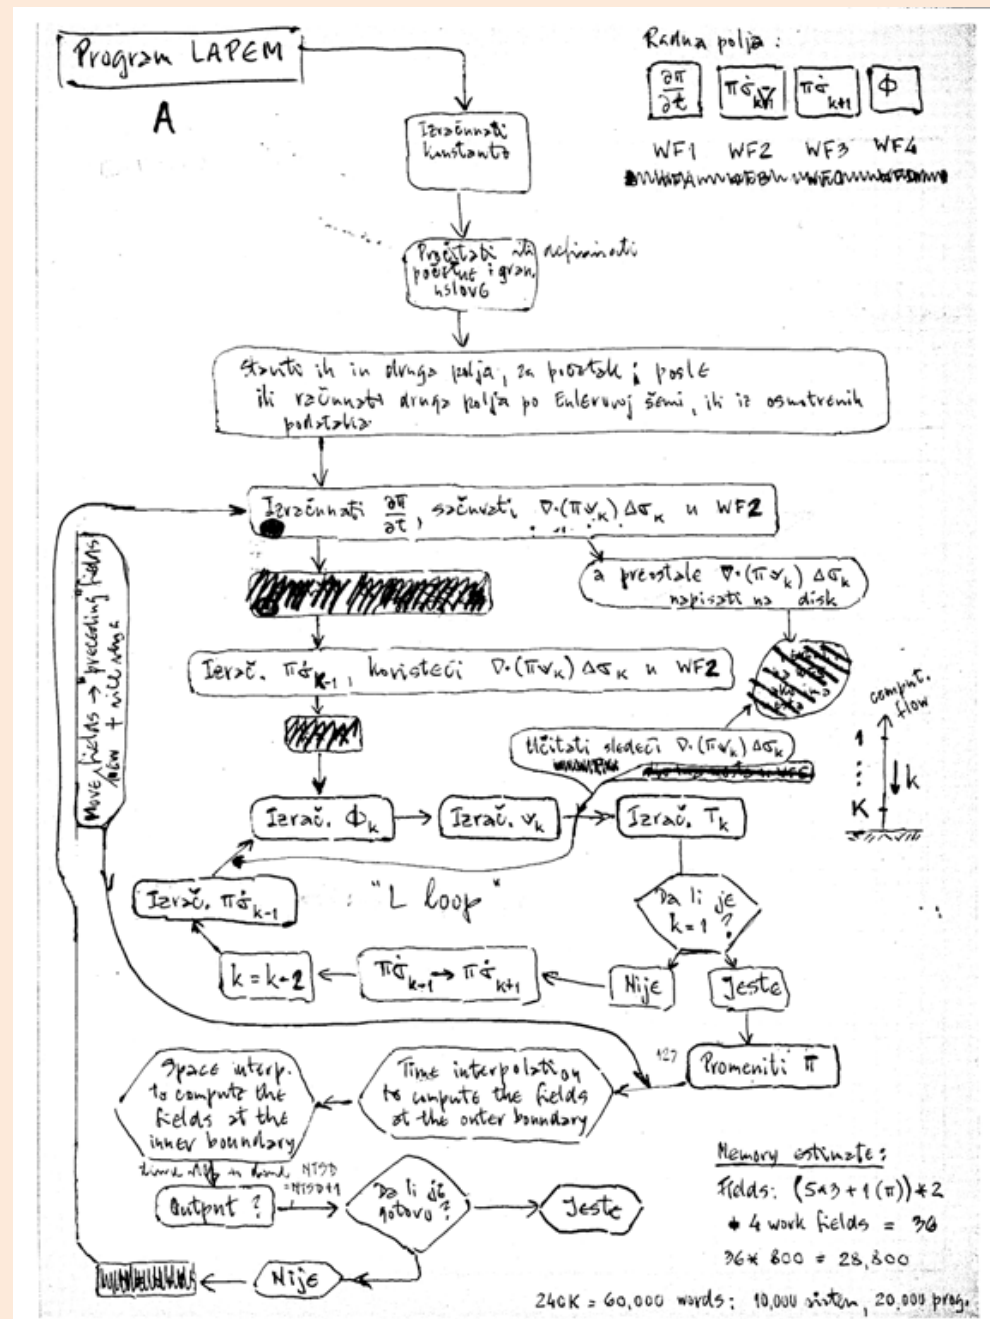 Program LAPEM
A
Radna polja:
∂π/∂t
πσ̇
πσ̇ k+1
Φ
WF1 WF2 WF3 WF4
Izračunati
konstante
Pročitati ili definisati
početne i gran.
uslove
Staviti ih in druga polja, za početak; posle
ili računati druga polja po Eulerovoj šemi, ili iz osmotrenih
podataka
Izračunati ∂π/∂t, sačuvati ∇·(πv_k) Δσ_k u WF2
a preostale ∇·(πv_k) Δσ_k
napisati na disk
Izrač. πσ̇_K-1, koristeći ∇·(πv_K) Δσ_K u WF2
Učitati sledeći ∇·(πv_k) Δσ_k
comput.
flow
1
k
K
Izrač. Φ_k
Izrač. v_k
Izrač. T_k
Move fields → "preceding" fields
Izrač. πσ̇_k-1
"L loop"
Da li je
k=1?
k = k-2
πσ̇_k-1 → πσ̇_k+1
Nije
Jeste
127
Promeniti π
Space interp.
to compute the
fields at the
inner boundary
Time interpolation
to compute the fields
at the outer boundary
NTSD
=NTSD+1
Output?
Da li je
gotovo?
Jeste
Nije
Memory estimate:
Fields: (5*3+1(π))*2
+ 4 work fields = 36
36* 800 = 28,800
240K = 60,000 words: 10,000 sistem, 20,000 prog.